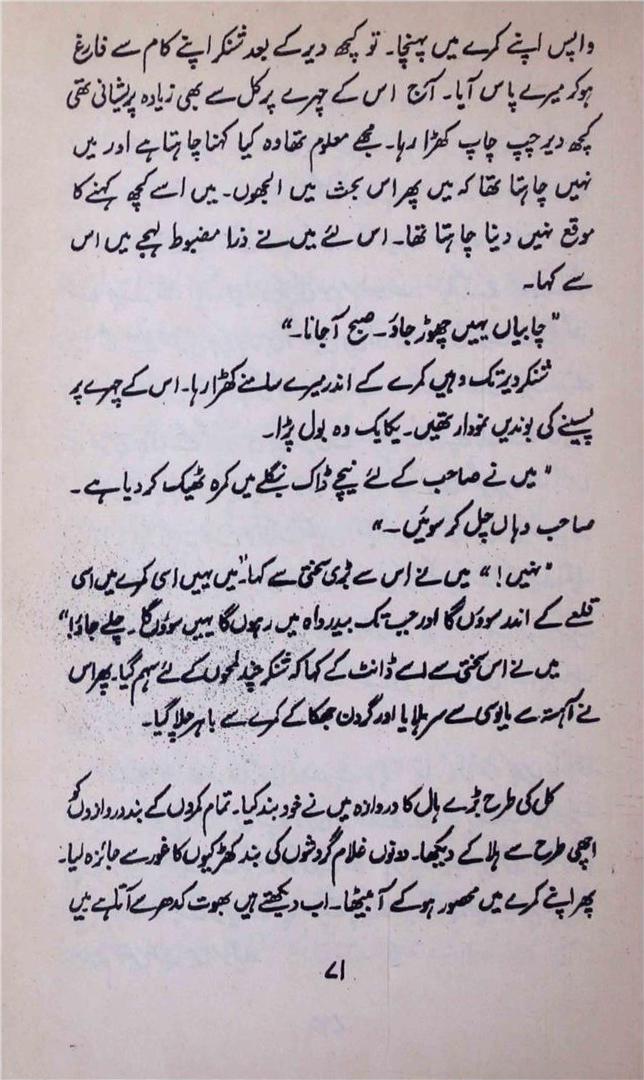 واپس اپنے کمرے میں پہنچا۔ تو کچھ دیر کے بعد شنکر اپنے کام سے فارغ
ہو کر میرے پاس آیا۔ آج اس کے چہرے پر کل سے بھی زیادہ پریشانی تھی
کچھ دیر چپ چاپ کھڑا رہا۔ مجھے معلوم تھا وہ کیا کہنا چاہتا ہے اور میں
نہیں چاہتا تھا کہ میں پھر اس بحث میں الجھوں۔ میں اسے کچھ کہنے کا
موقع نہیں دینا چاہتا تھا۔ اس لئے میں نے ذرا مضبوط لہجے میں اس
سے کہا۔
"چابیاں یہیں چھوڑ جاؤ۔ صبح آجانا۔"
شنکر دیر تک وہیں کمرے کے اندر میرے سامنے کھڑا رہا۔ اس کے چہرے پر
پسینے کی بوندیں نمودار تھیں۔ یکایک وہ بول پڑا۔
"میں نے صاحب کے لئے نیچے ڈاک بنگلے میں کمرہ ٹھیک کر دیا ہے۔
صاحب وہاں چل کر سوئیں۔"
"نہیں!" میں نے اس سے بڑی سختی سے کہا۔ "میں یہیں اسی کمرے میں اسی
قلعے کے اندر سوؤں گا اور جب تک بیدرواہ میں رہوں گا یہیں سوؤں گا۔ چلے جاؤ!"
میں نے اس سختی سے اسے ڈانٹ کے کہا کہ شنکر چند لمحوں کے لئے سہم گیا۔ پھر اس
نے آہستہ سے مایوسی سے سر ہلایا اور گردن جھکا کے کمرے سے باہر چلا گیا۔
کل کی طرح بڑے ہال کا دروازہ میں نے خود بند کیا۔ تمام کمروں کے بند دروازوں کو
اچھی طرح سے ہلا کے دیکھا۔ دونوں غلام گردشوں کی بند کھڑکیوں کا غور سے جائزہ لیا۔
پھر اپنے کمرے میں محصور ہو کے آ بیٹھا۔ اب دیکھتے ہیں بھوت کدھر سے آتا ہے میں
۷۱